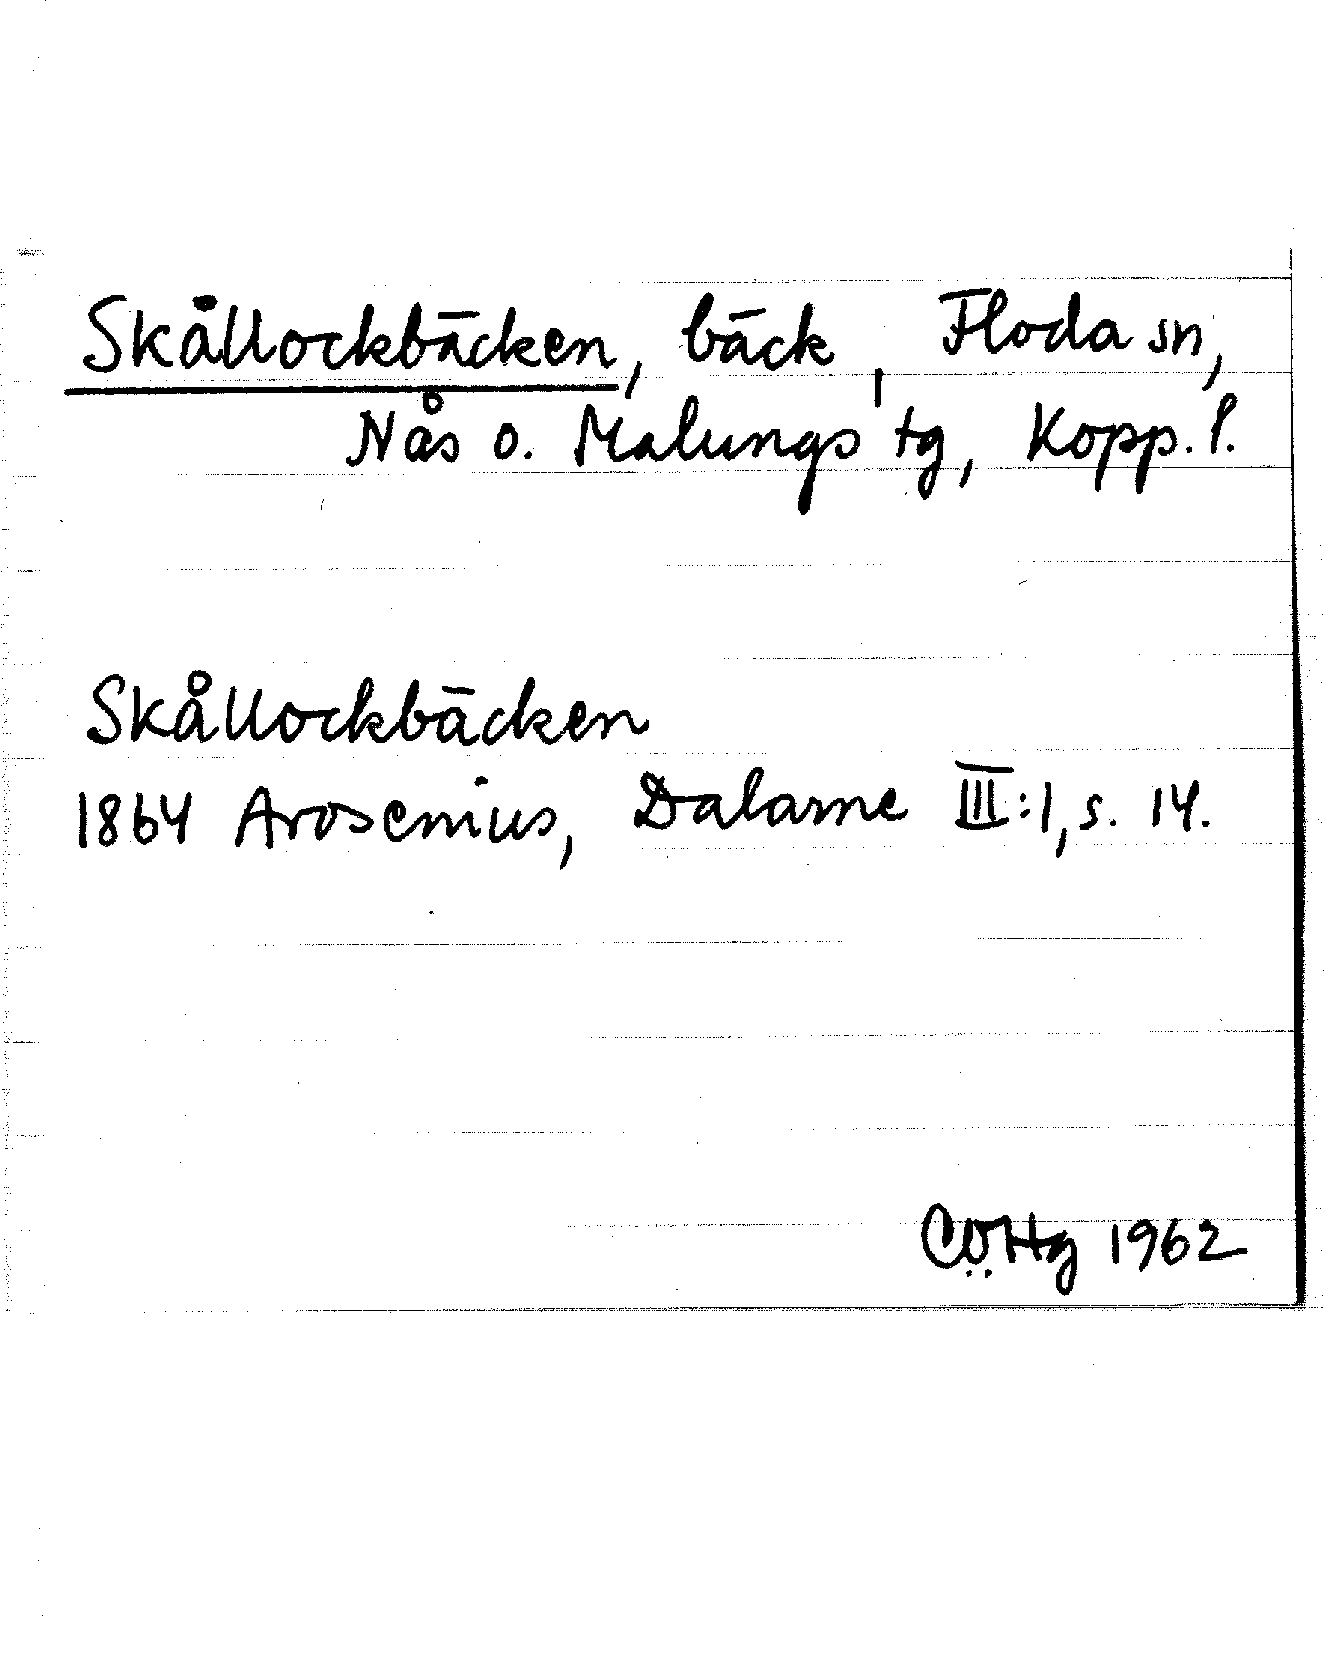 Skållockbäcken, bäck, Floda sn,
Nås o. Malungs tg, Kopp. l.
Skållockbäcken
1864 Arosenius, Dalarne III:1, s. 14.
CÖHg 1962